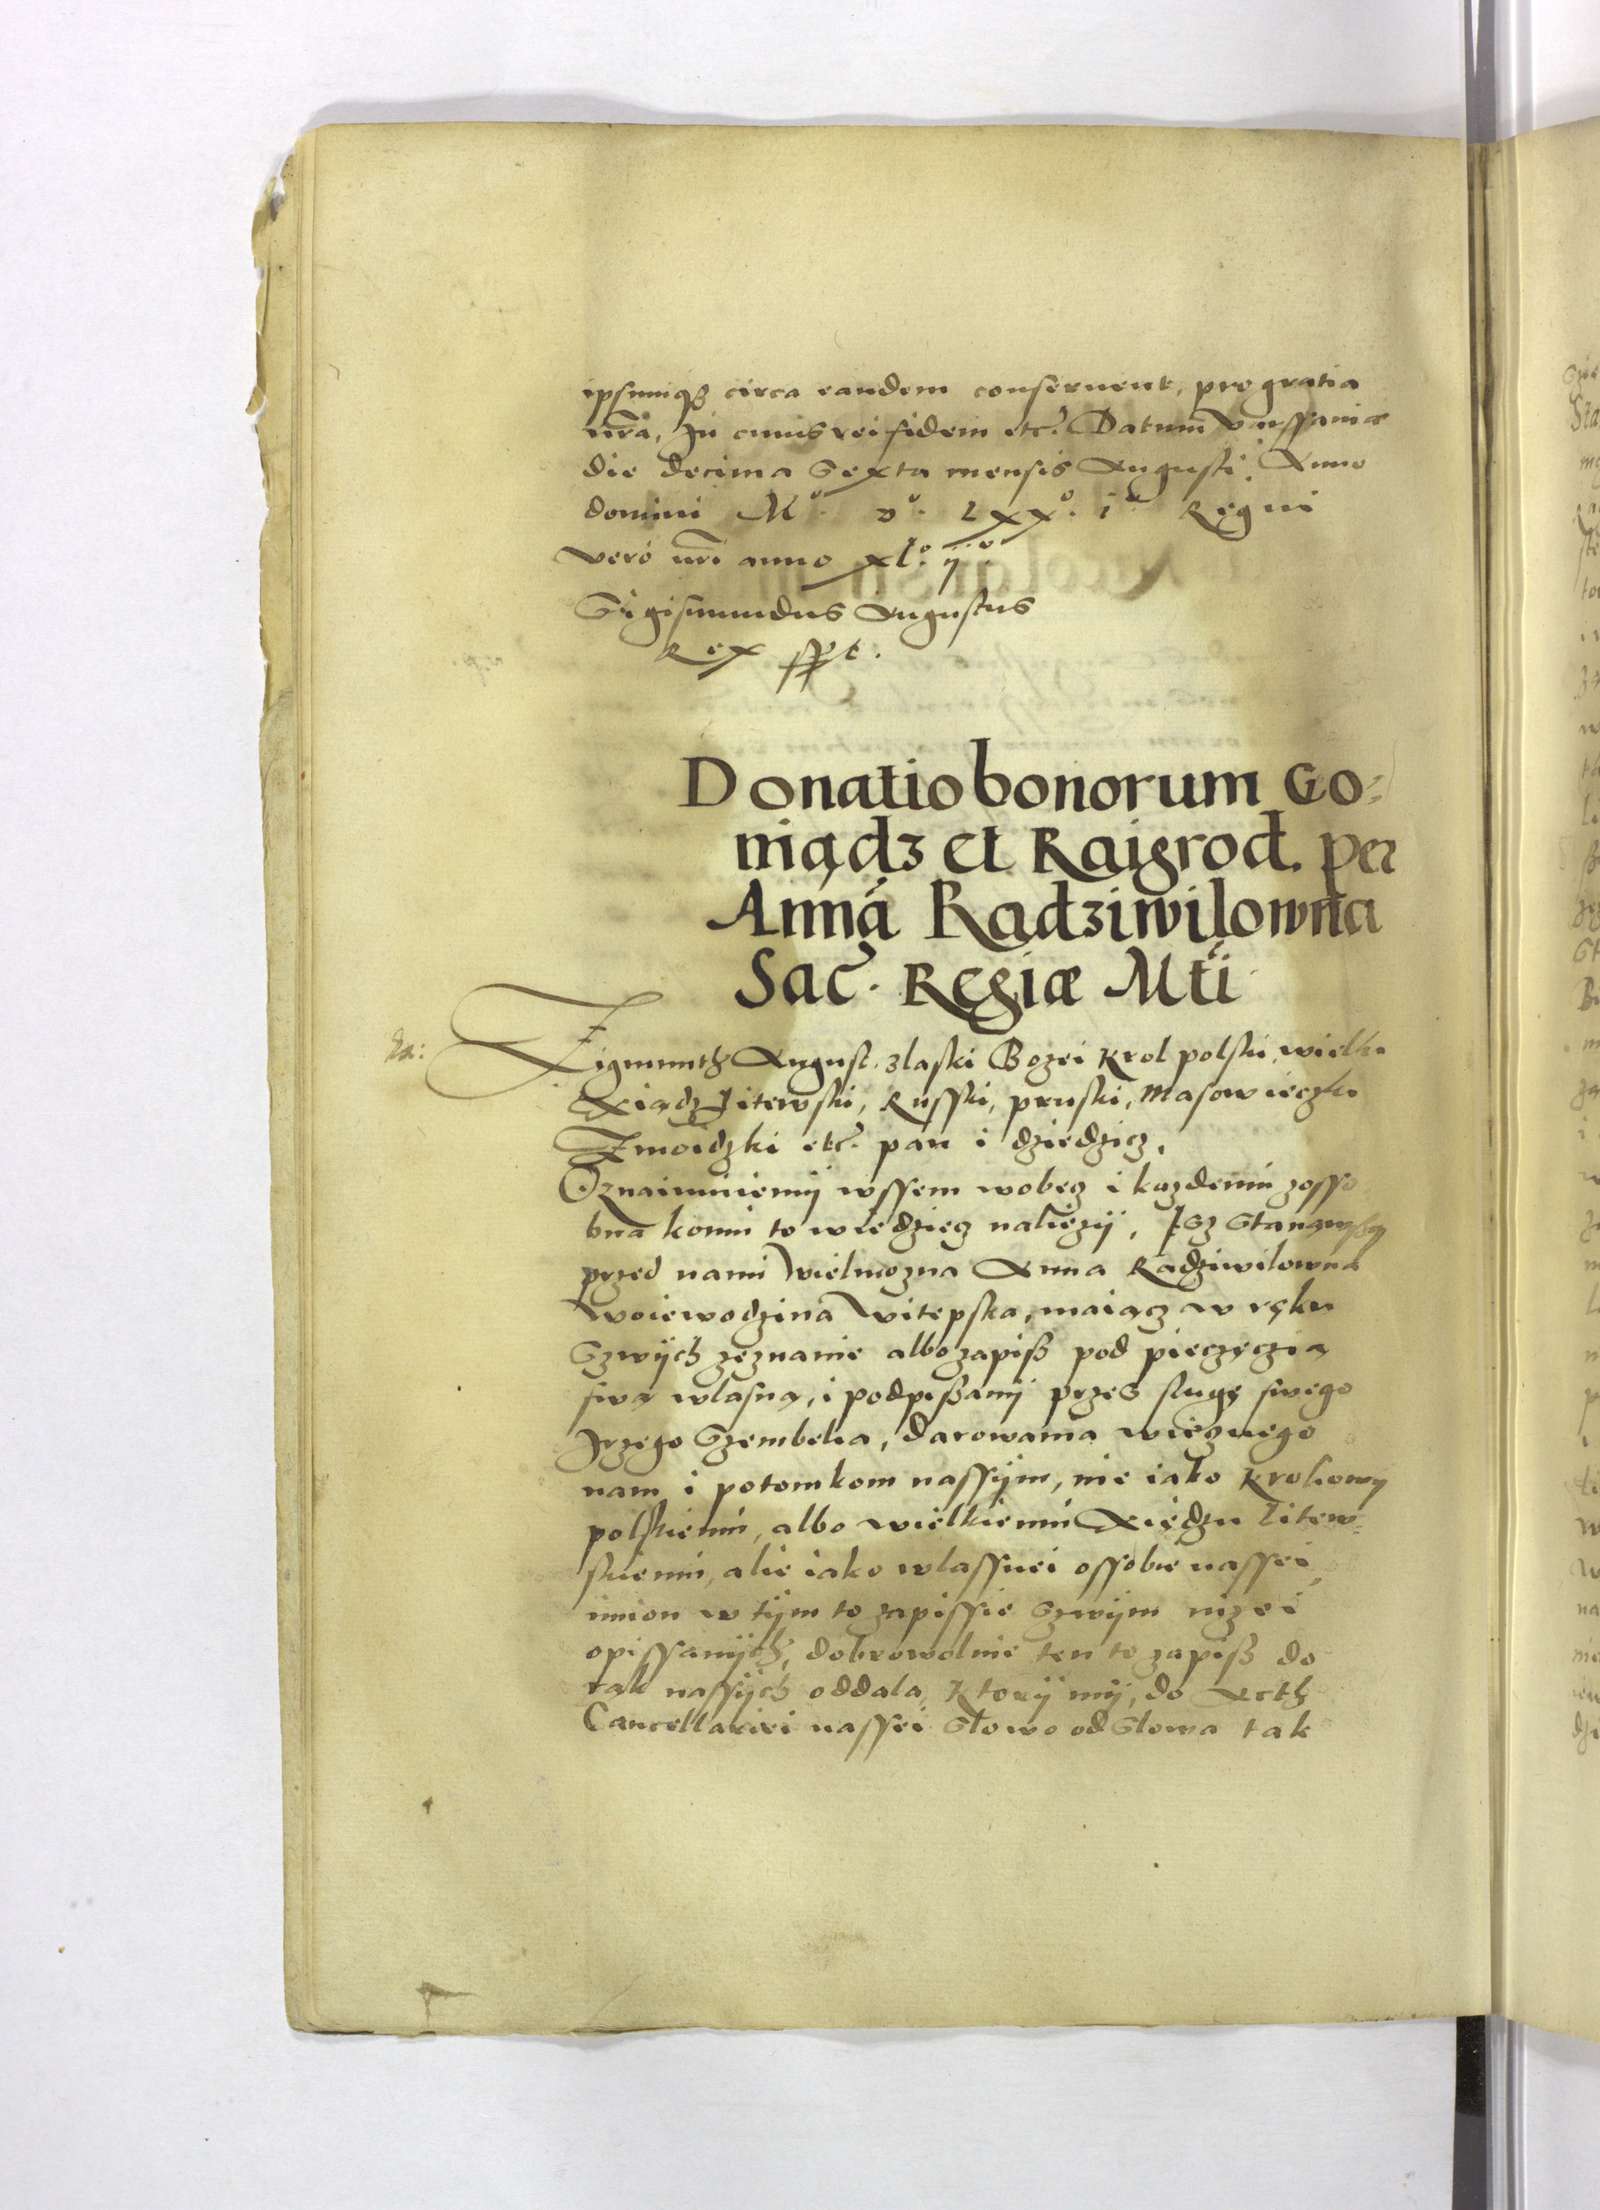 ipsumq3 circa eandem conseruent, pro gratia
nrā, In cuius rei fidem etc. Datum Varssauiæ
die decima Sexta mensis Augusti, Anno
domini Mº. Dº. Lxxº. iº Regni
vero nrī anno xlº. ijº.
Sigismundus Augustus
Rex sst.
Donatio bonorum Go=
niądz et Raigrod. per
Anną Radziwilowna
Sac. Regiæ Mti
Zigmunth August z laski Bozei Krol polski, wielki
Xiądz Litewski, Russki, pruski, Masowieczki
Zmoidzki etc. pan i dziedzicz,
Oznaimuiemÿ wssem wobecz i kazdemu zosso
bna komu to wiedziecz naliezÿ, Isz Stanąwszÿ
przed nami Wielmozna Anna Radziwilowna
Woiewodzina Witepska, maiącz w ręku
Szwÿch zeznanie albo zapiß pod pieczęczią
swą wlasną, i podpißanÿ przes slugę swego
Jrzego Szembelia, darowania wiecznego
nam i potomkom nassÿm, nie iako Krolowÿ
polskiemu, albo wielkiemu Xiędzu Litew=
skiemu, alie iako wlassnei ossobie nassei,
imion w tÿm to zapissie Szwÿm nizei
opissanÿch, dobrowolnie ten to zapiß do
rąk nassÿch oddala, Ktorÿ mÿ, do Acth
Cancellariei nassei Slowo od Slowa tak